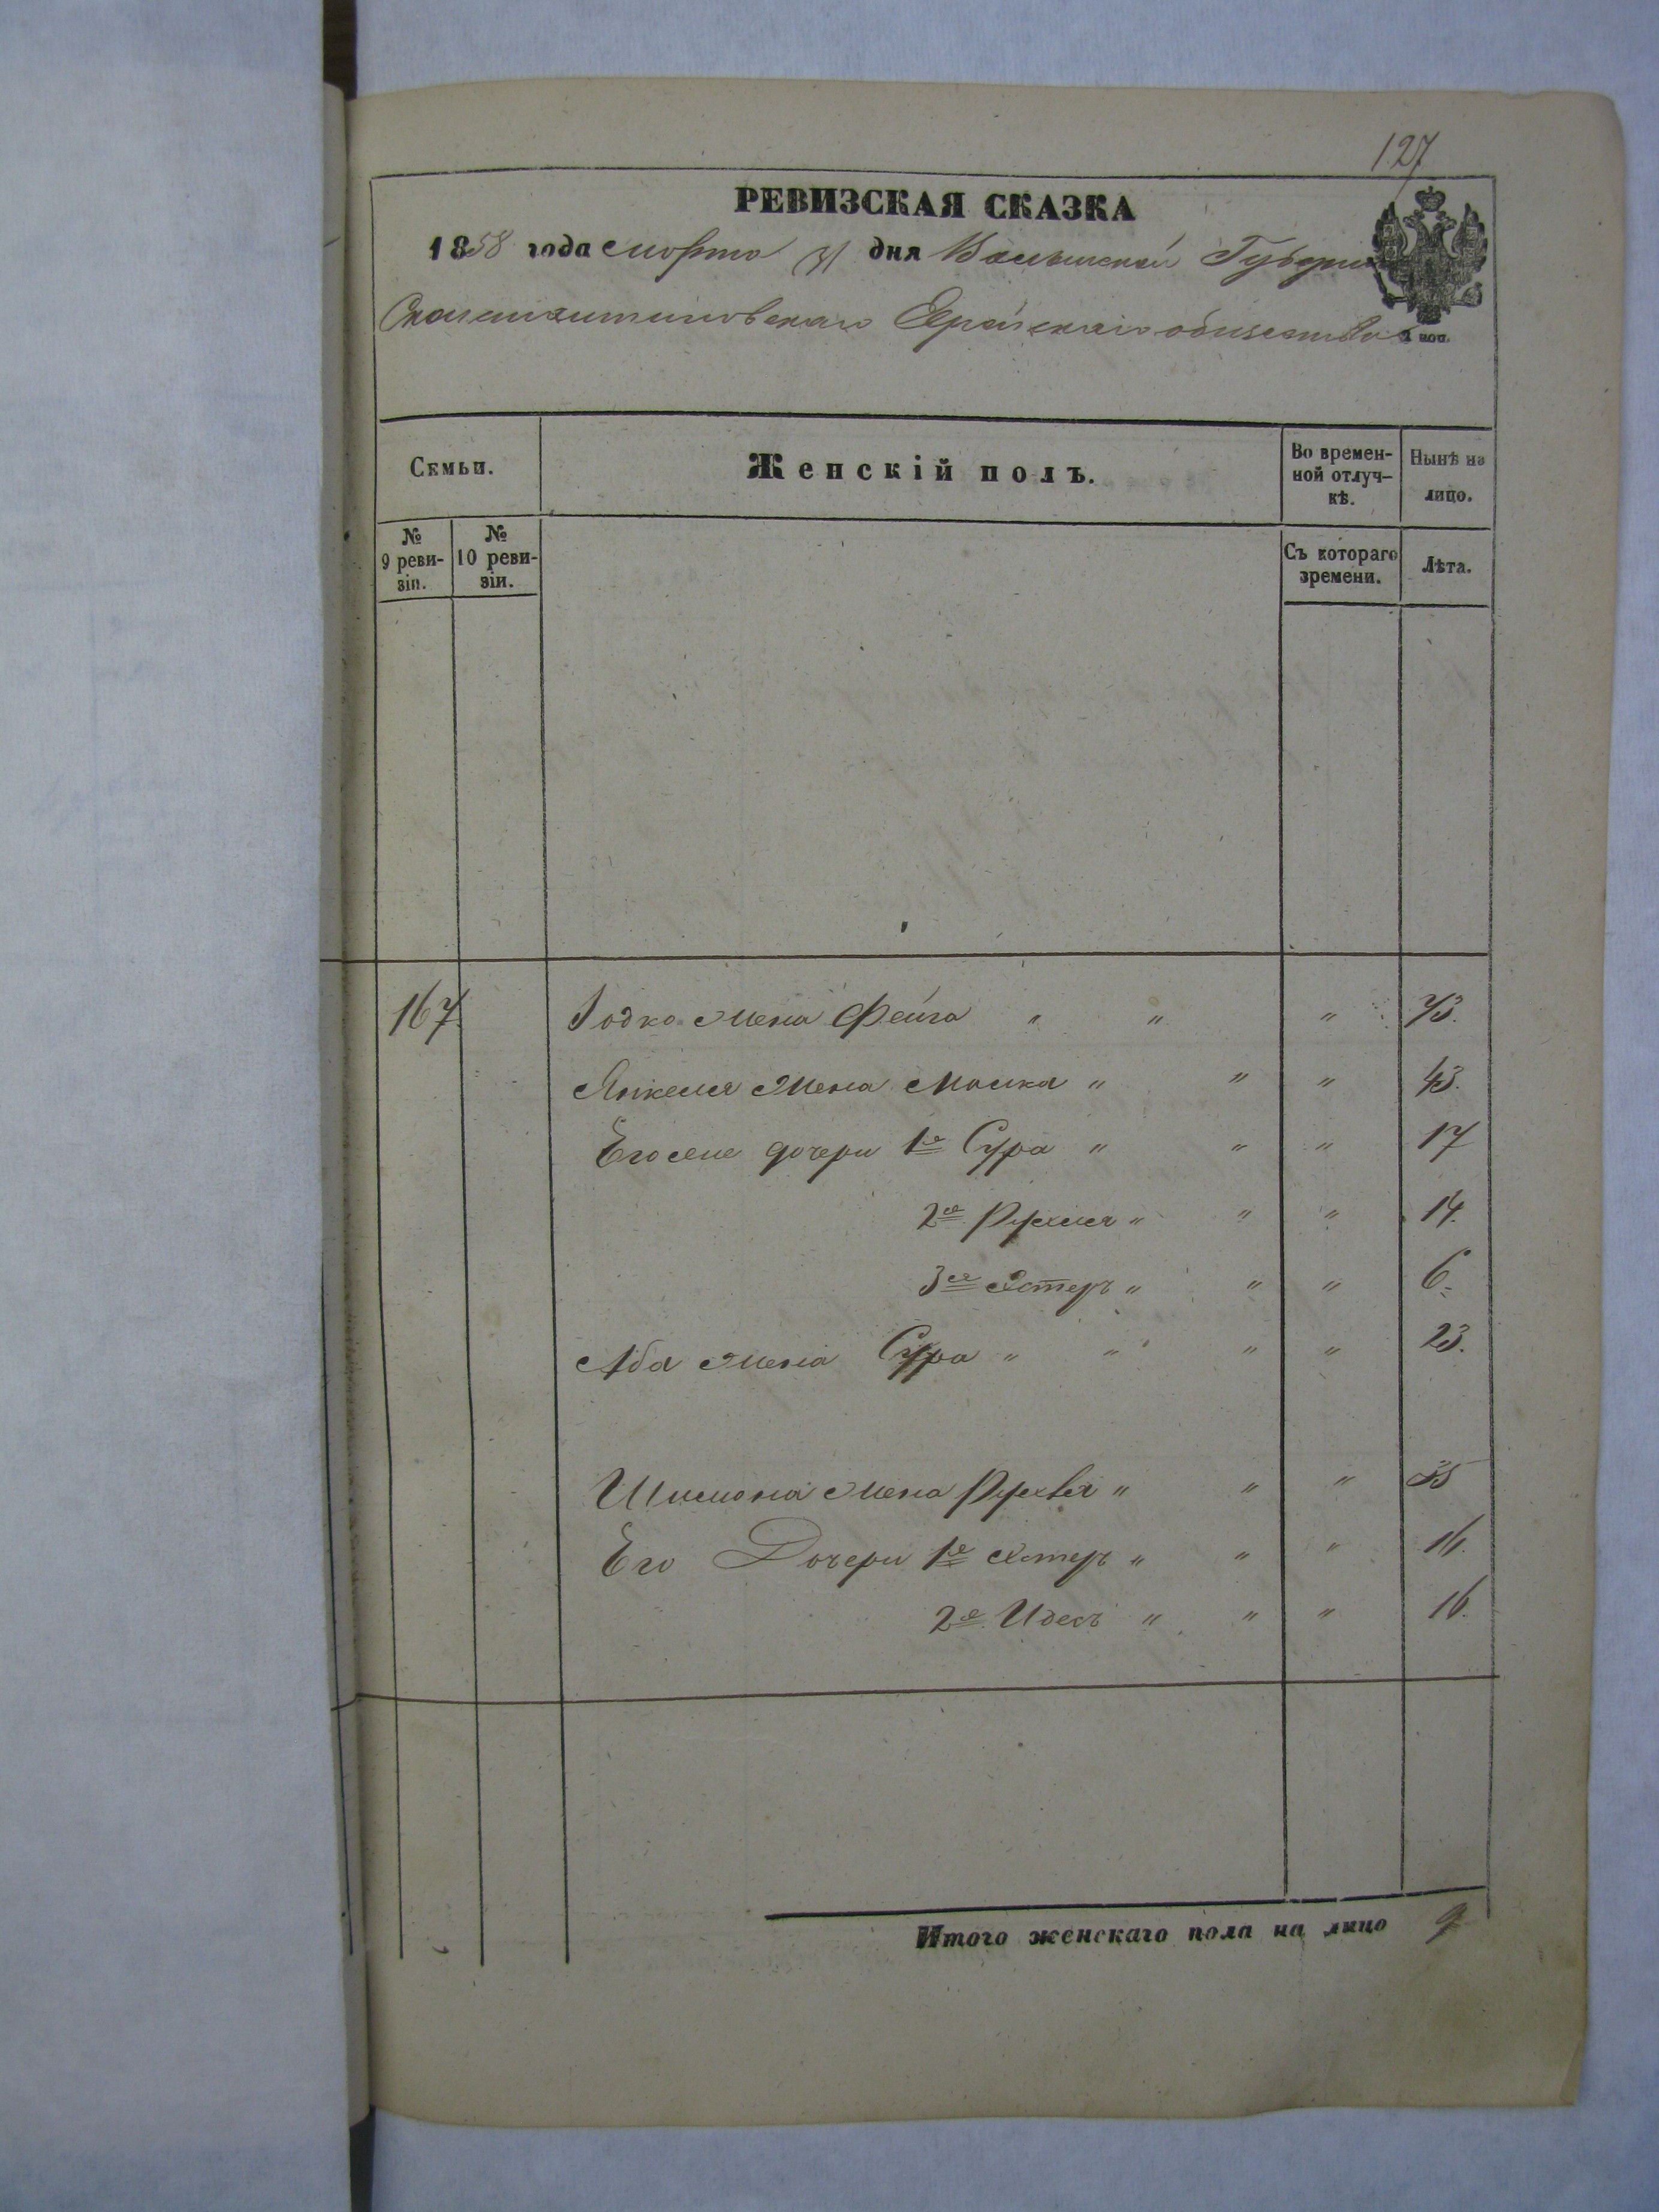 127
РЕВИЗСКАЯ СКАЗКА
1858 года Марта 31 дня Волынской Губернии
Староконстантиновскаго Еврейскаго общества
Семьи.
Женскій полъ.
Во времен-
ной отлуч-
кѣ.
Нынѣ на
лицо.
№
9 реви-
зіи.
№
10 реви-
зіи.
Съ котораго
времени.
Лѣта.
167. Іодко жена Фейга " " " 73.
Янкеля жена Малка " " " 43.
Его же дочери 1я Сура " " " 17
2я Рухля " " " 14.
3я Эстеръ " " " 6.
Аба жена Сура " " " " 23.
Шимона жена Рухля " " " 35
Его Дочери 1я Эстеръ " " " 16.
2я Идесъ " " " 16.
Итого женскаго пола на лицо 9